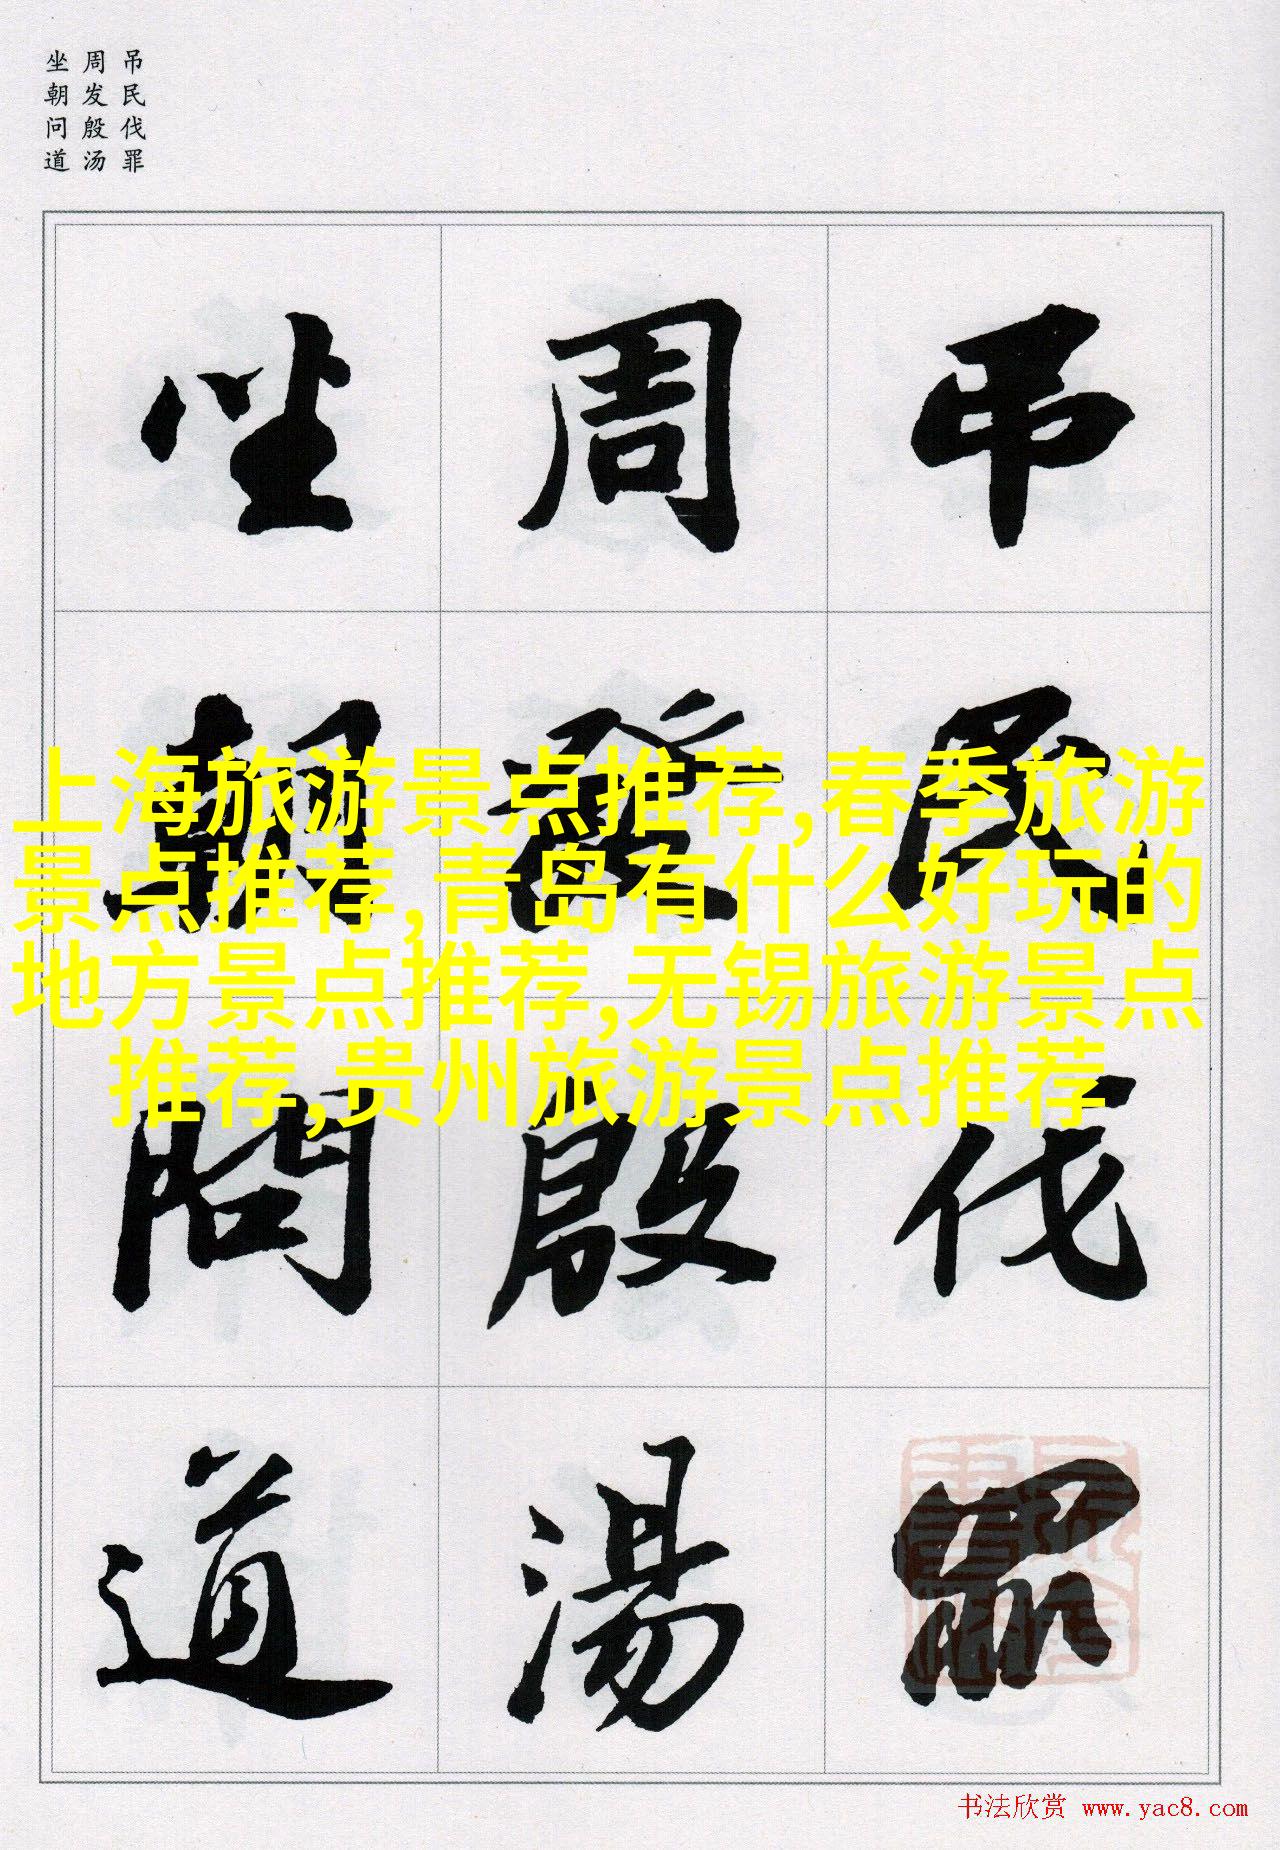 吊民伐罪
周发殷汤
坐朝问道
吊民伐罪
周發殷湯
坐朝問道
上海旅游景点推荐,春季旅游
景点推荐,青岛有什么好玩的
地方景点推荐,无锡旅游景点
推荐,贵州旅游景点推荐
书法欣赏 www.yac8.com